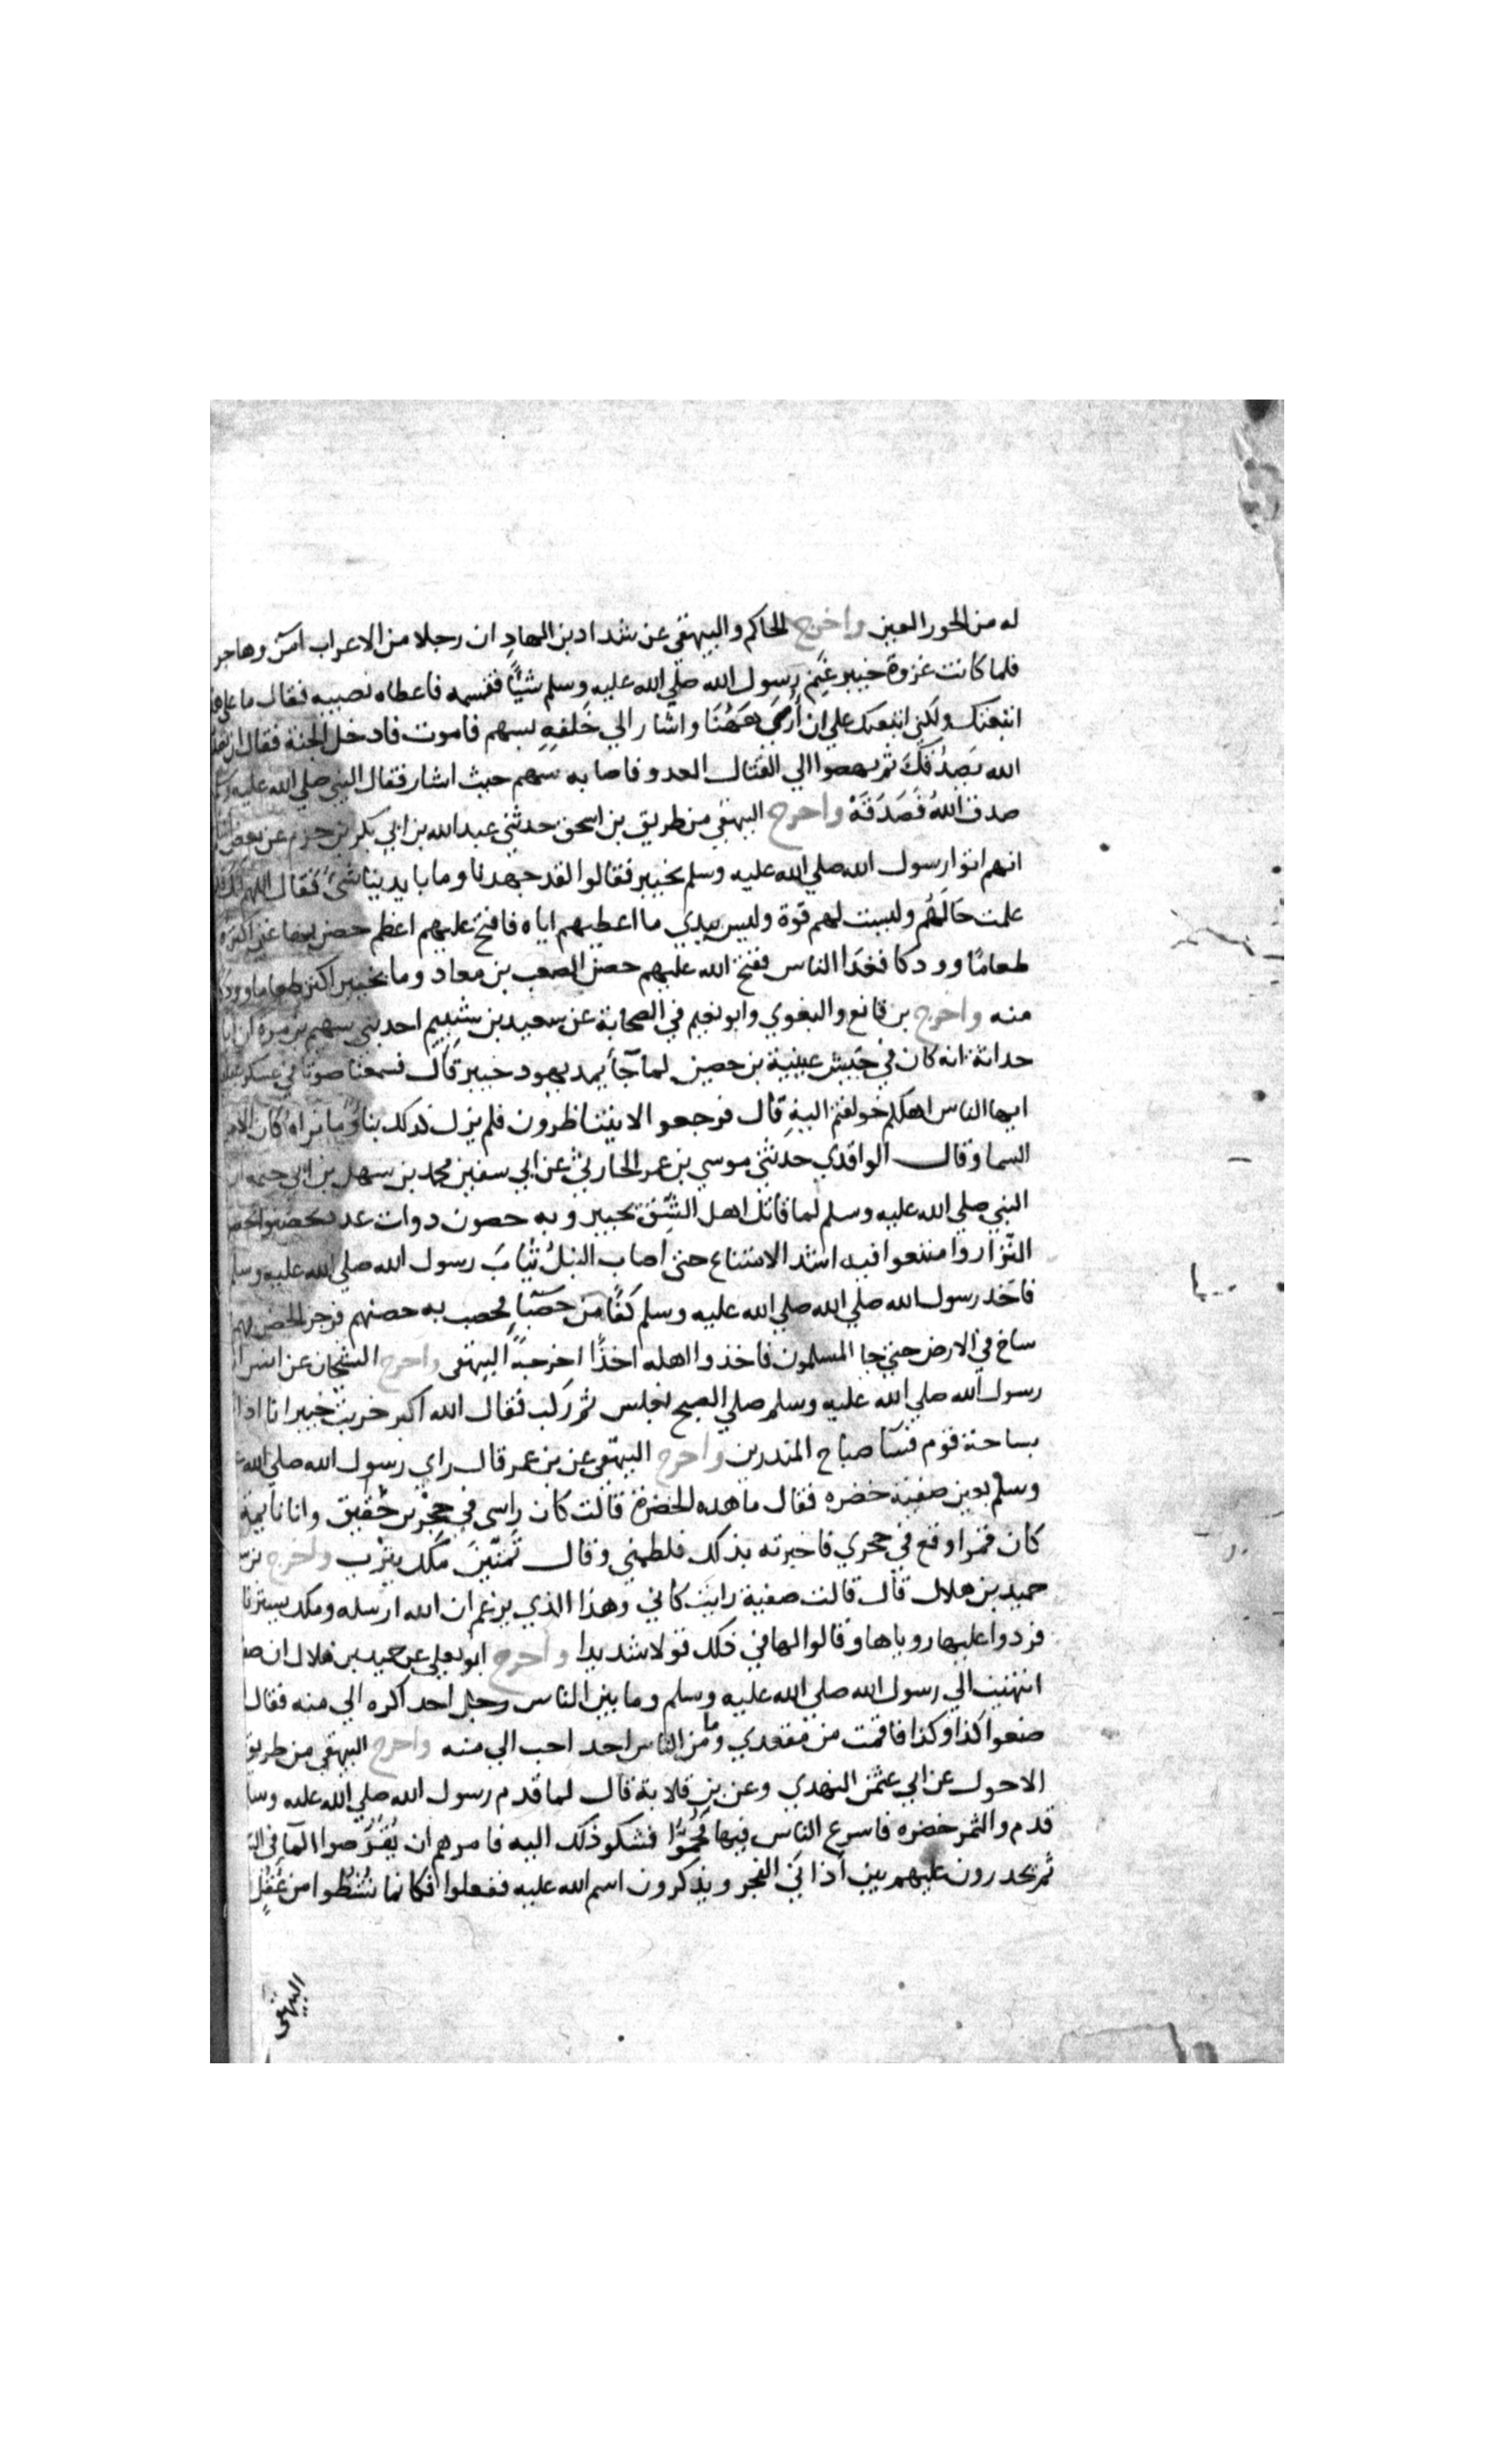 له من الحور العين واخرج الحاكم والبيهقي عن شداد بن الهاد ان رجلا من الاعراب آمن وهاجر
فلما كانت غزوة خيبر غنم رسول الله صلي الله عليه وسلم شيًا فقسمه فاعطاه نصيبه فقال ما علي
اتبعتك ولكني اتبعتك علي ان أرمى هَهُنَا واشار الي خَلفهِ بسهم فاموت فادخل الجنة فقال ان
الله يَصدُقكَ ثم نهضوا الي القتال العدو فاصابه سهم حيث اشار فقال النبي صلي الله عليه
صدق اللهُ فَصَدَقَهْ واخرج البيهقي من طريق بن اسحق حدثني عبدالله بن ابي بكر بن حزم عن بعض
انهم اتوا رسول الله صلي الله عليه وسلم بخيبر فقالوا لقد جهدنا وما بايدينا شئ فقال اللهم
علمت حَالَهُم وليست لهم قوة وليس بيدي ما اعطيهم اياه فافتح عليهم اعظم حصن بها غني اكثره
طعامًا وودكا فغدَا الناس ففتح الله عليهم حصن الصعب بن معاد وما بخيبر اكثر طعاما وودكا
منه واخرج بن قانع والبغوي وابو نعيم في الصحابة عن سعيد بن شبيم احد بني سهم بن مرة ان
حداثة انه كان في جَيش عيينة بن حصين لما جآ يمد يهود خيبر قال فسمعنا صوتا في عسكر
ايها الناس اهلكم خولفتم اليهِ قال فرجعوا لا يتناظرون فلم نزل كذلك بناؤما نراه كان الا من
السما وقال الواقدي حدثني موسي بن عمر الحارثي عن ابي سفين محمد بن سهل بن ابي حثمه ان
النبي صلي الله عليه وسلم لما قاتل اهل الشِّق بخيبر وبه حصون دوات عدد تحصنوا
النّزار وامتنعوا فيه اشد الامتناع حتى اصاب النبلُ ثيابَ رسول الله صلي الله عليه وسلم
فاخد رسول الله صلي الله صلي الله عليه وسلم كَفًا من حَصَبا فحصب به حصنهم فرجر الحصن بهم
ساخ في الارض حتي جا المسلمون فاخذوا اهله اخذًا اخرجهُ البيهقي واخرج الشيخان عن انس ان
رسول الله صلي الله عليه وسلم صلي الصبح بغلس ثم ركب فقال الله اكبر خربت خيبر انا اذا
بساحة قوم فسآ صباح المندرين واخرج البيهقي عن بن عمر قال راي رسول الله صلي الله
وسلم بعين صفية خضره فقال ما هده الخضرة قالت كان راسي في حجر بن حُقَيق وانا نايمة
كان قمرا وقع في حجري فاخبرته بذلك فلطمني وقال تَمَنّينَ مَلك يثرب واخرج
حميد بن هلال قال قالت صفية رايت كاني وهذا الذي يزعم ان الله ارسله وملك يسترنا
فردوا عليها روياها وقالوا لها في ذلك قولا شديدا واخرج ابو يعلي عن حميد بن هلال ان
انتهيت الي رسول الله صلي الله عليه وسلم وما بين الناس رجل احد اكره الي منه فقال
صنعوا كذا وكذا فما قمت من مقعدي وما من الناس احد احب الي منه واخرج البيهقي من طريق
الاحول عن ابي عثمن النهدي وعن بن قلابة قال لما قدم رسول الله صلي الله عليه
قدم والثمر خضره فاسرع الناس فيها فَحُمُّوا فشكو ذلك اليه فامرهم ان يُقَرِّصوا المآ في
ثم يحدرون عليهم بين أذاني الفجر ويذكرون اسم الله عليه ففعلوا فكانما نُشِطُوا من عُقُل
البيهقي